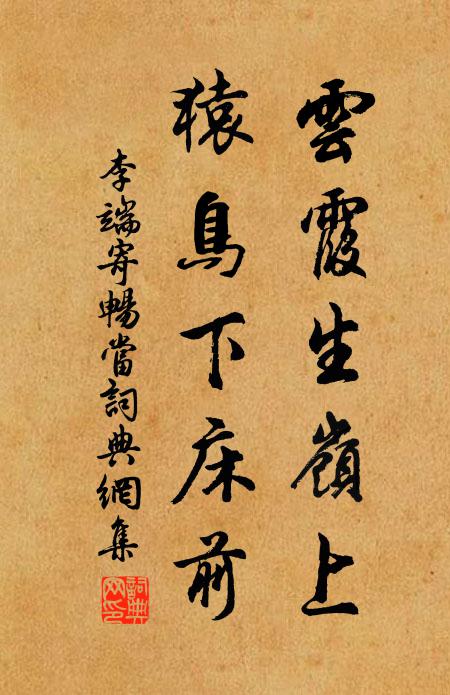 雲霞生嶺上
猿鳥下床前
李端寄暢當詞典網集
詞典網印